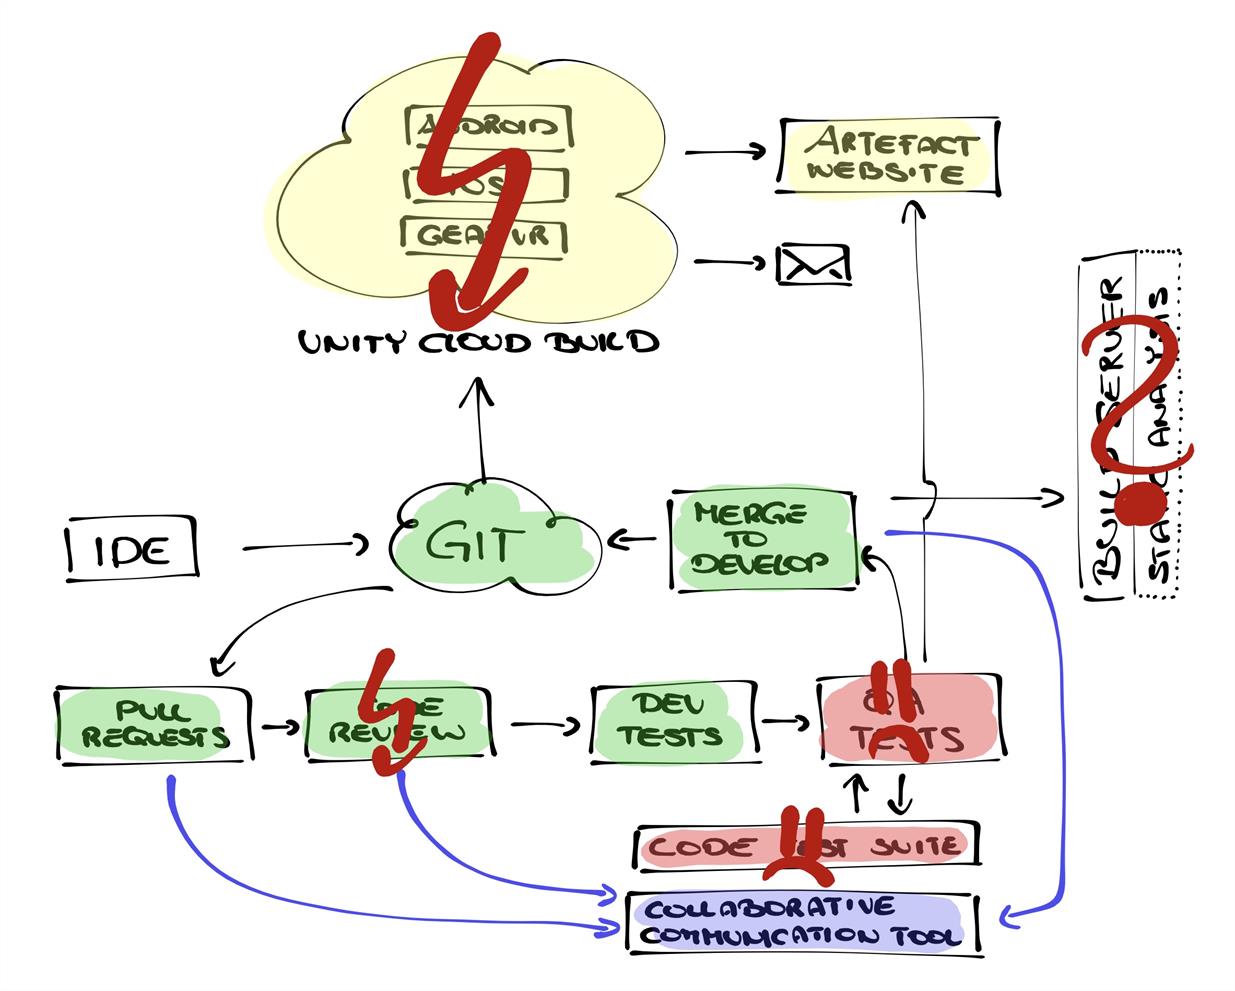 ANDROID
IOS
GEAR VR
UNITY CLOUD BUILD
ARTEFACT
WEBSITE
BUILD SERVER
STATIC ANALYSIS
IDE
GIT
MERGE
TO
DEVELOP
PULL
REQUESTS
CODE
REVIEW
DEV
TESTS
QA
TESTS
CODE TEST SUITE
COLLABORATIVE
COMMUNICATION TOOL